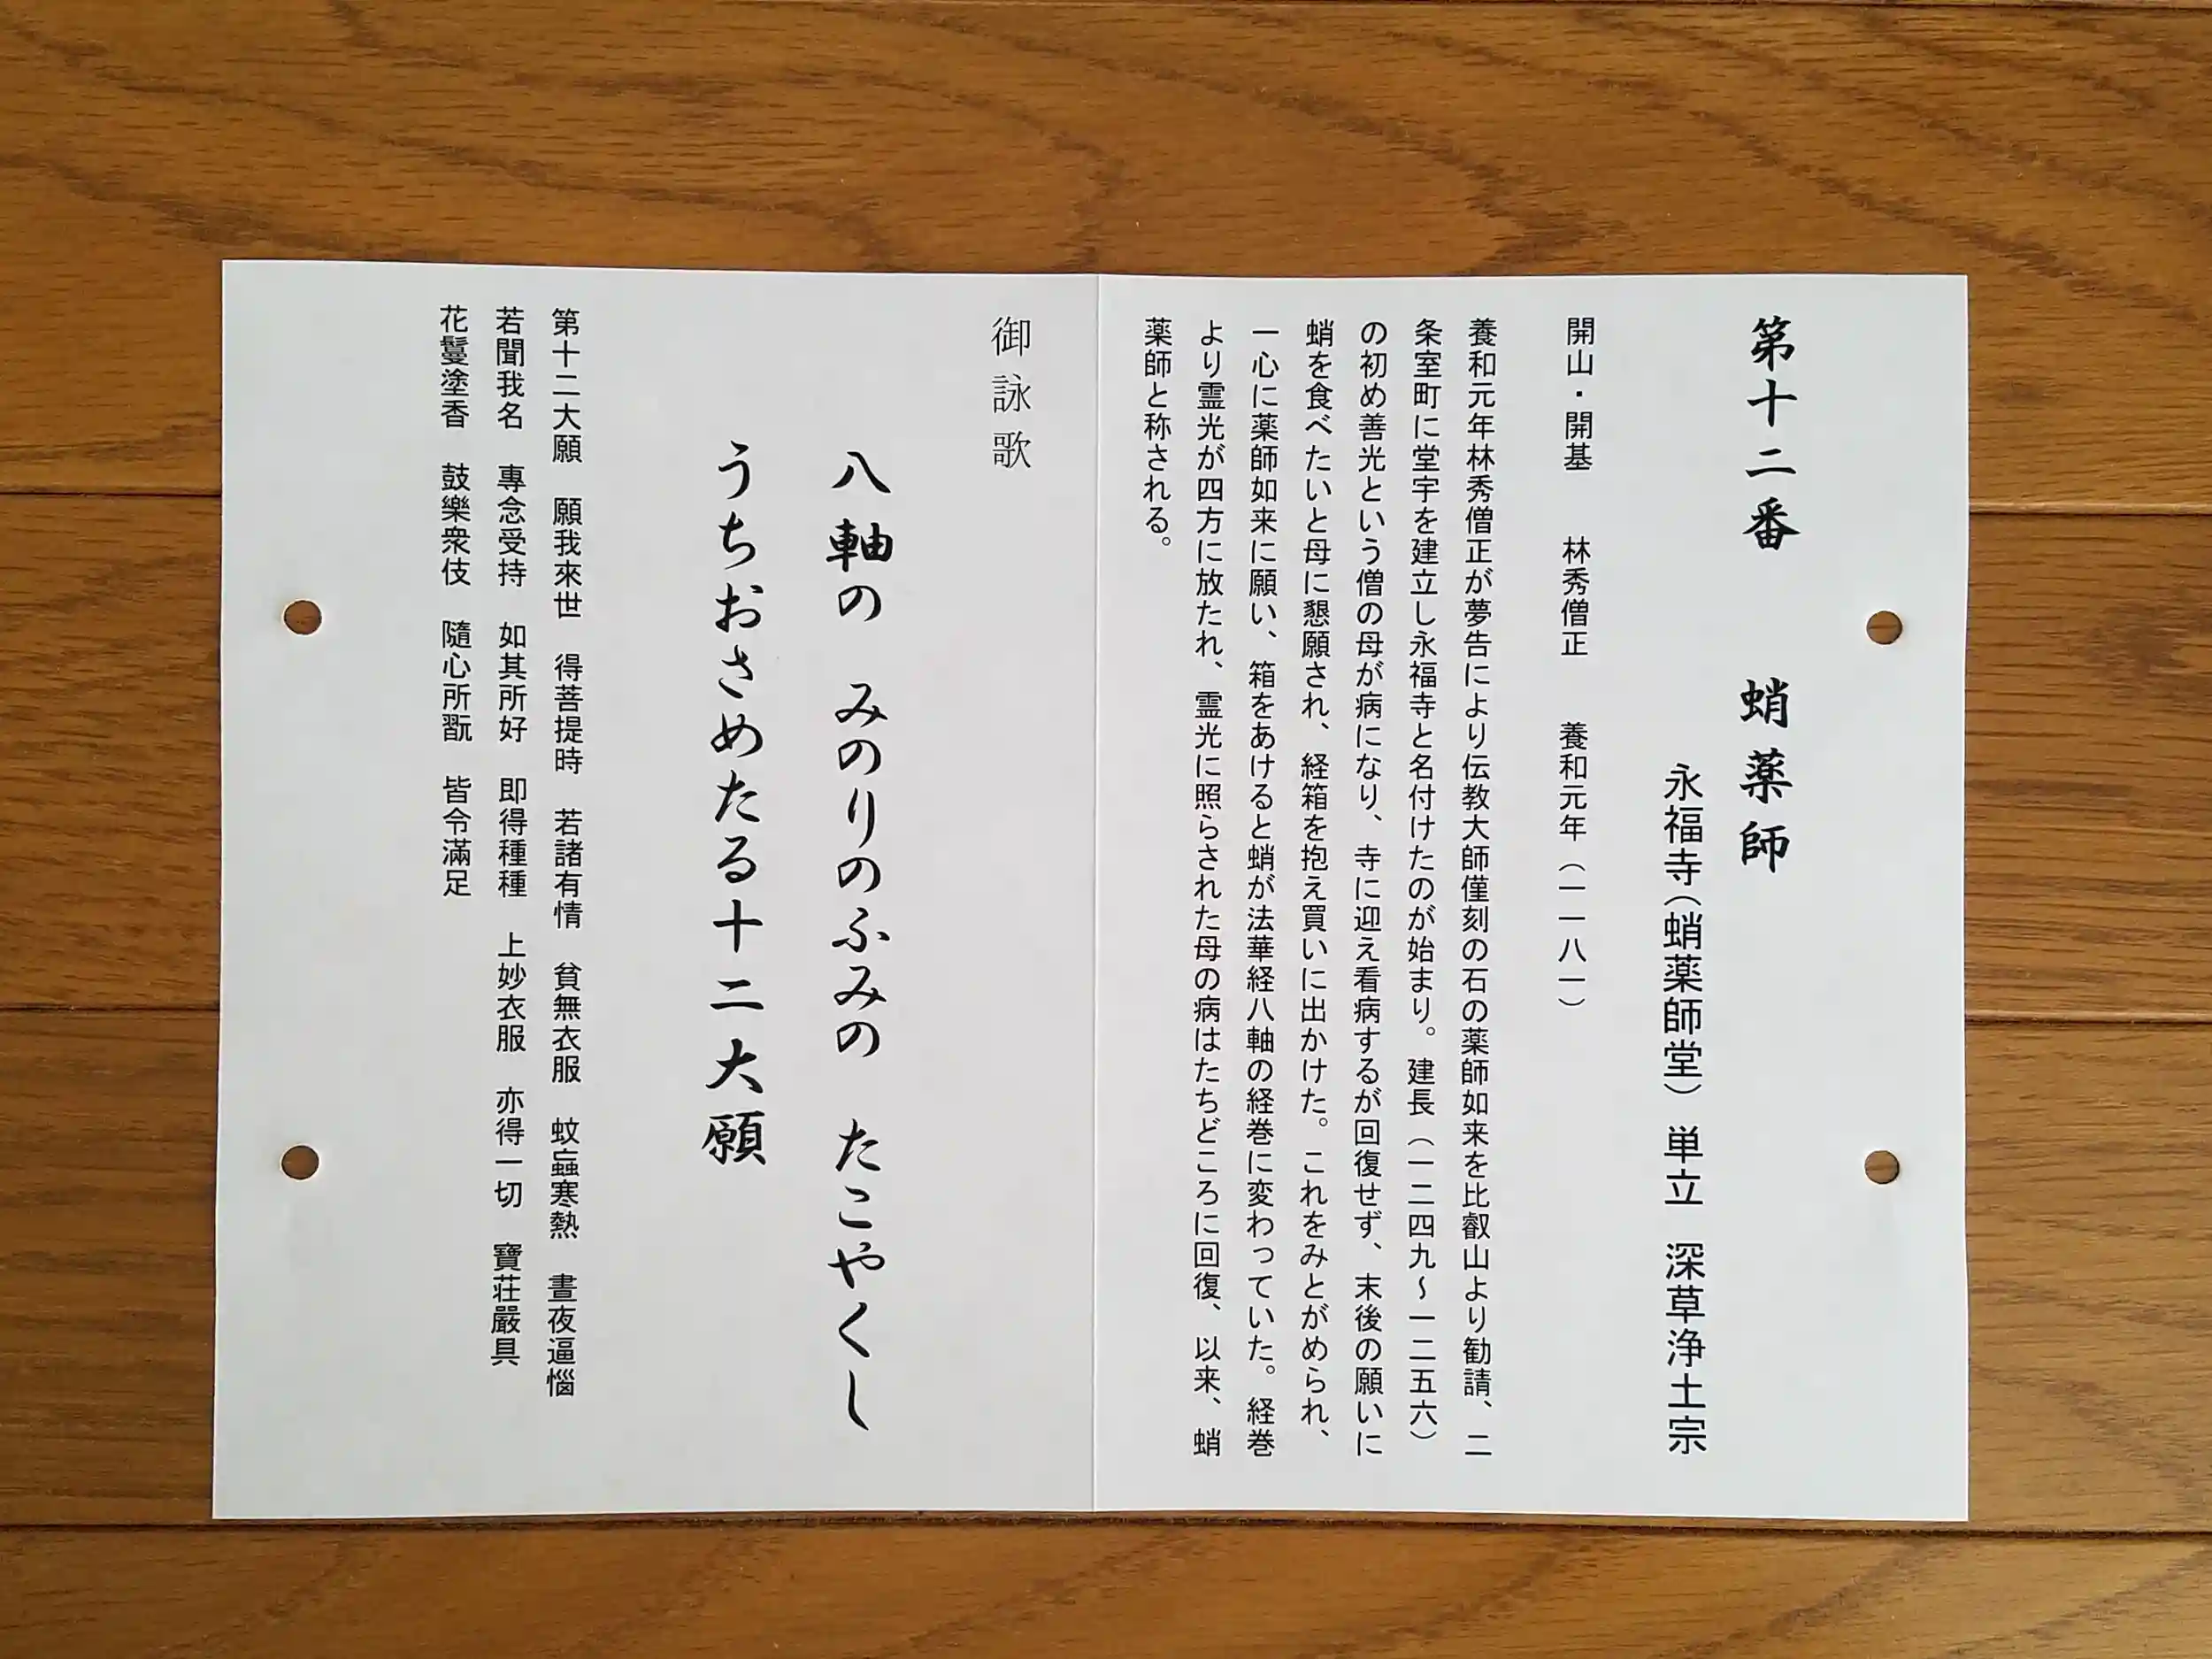 第十二番　蛸薬師
永福寺（蛸薬師堂）単立　深草浄土宗
開山・開基　林秀僧正　養和元年（一一八一）
養和元年林秀僧正が夢告により伝教大師僅刻の石の薬師如来を比叡山より勧請、二
条室町に堂宇を建立し永福寺と名付けたのが始まり。建長（一二四九～一二五六）
の初め善光という僧の母が病になり、寺に迎え看病するが回復せず、末後の願いに
蛸を食べたいと母に懇願され、経箱を抱え買いに出かけた。これをみとがめられ、
一心に薬師如来に願い、箱をあけると蛸が法華経八軸の経巻に変わっていた。経巻
より霊光が四方に放たれ、霊光に照らされた母の病はたちどころに回復、以来、蛸
薬師と称される。
御詠歌
八軸の　みのりのふみの　たこやくし
うちおさめたる十二大願
第十二大願　願我來世　得菩提時　若諸有情　貧無衣服　蚊蝱寒熱　晝夜逼惱
若聞我名　專念受持　如其所好　即得種種　上妙衣服　亦得一切　寶荘嚴具
花鬘塗香　鼓樂衆伎　隨心所翫　皆令滿足